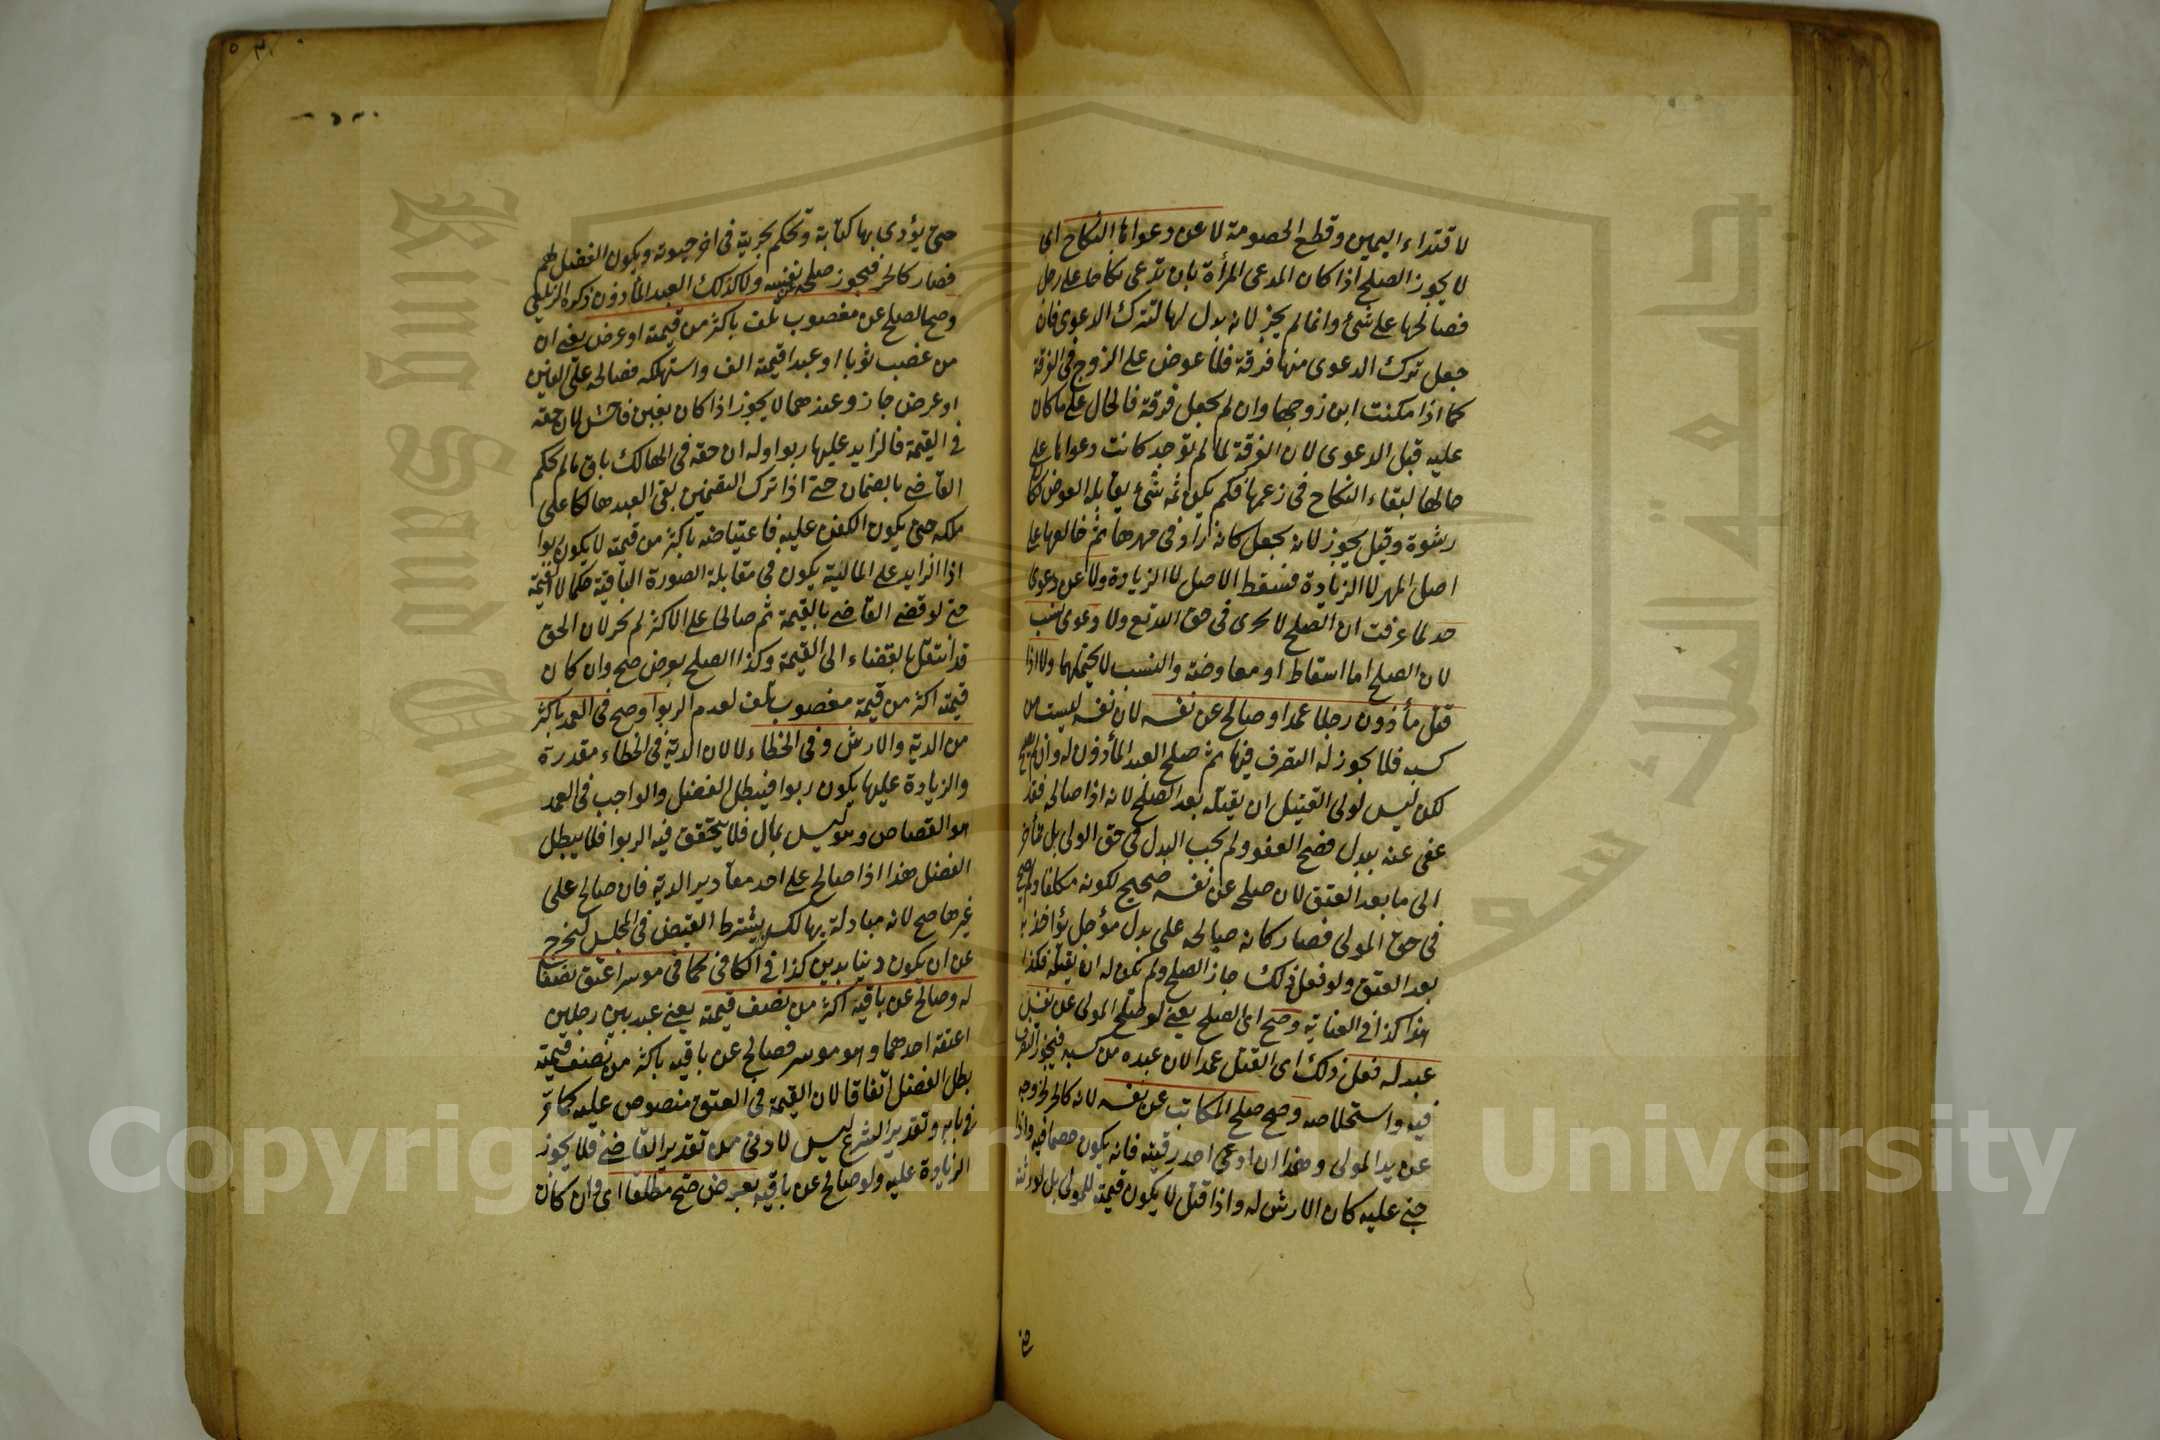 لاقتداء اليمين وقطع الخصومة لا عن دعواها النكاح اى
لا يجوز الصلح اذا كان المدعى المرأة بان تدعى نكاحا على رجل
فصالحها على شئ وانما لم يجز لانه بدل لها لتترك الدعوى فان
جعل ترك الدعوى منها فرقة فلا عوض على الزوج فى الفرقة
كما اذا مكنت ابن زوجها وان لم يجعل فرقة فالحال على ما كان
عليه قبل الدعوى لان الفرقة لما لم توجد كانت دعواها على
حالها لبقاء النكاح فى زعمها فلم يكن ثمه شئ يقابله العوض فكان
رشوة وقيل يجوز لانه يجعل كانه ازاد فى مهرها ثم خالعها على
اصل المهر لا الزيادة فسقط الاصل لا الزيادة ولا عن دعوى
حد لما عرفت ان الصلح لا يجرى فى حق الله تع ولا دعوى نسب
لان الصلح اما اسقاط او معاوضة والنسب لا يحتملهما ولا اذا
قتل مأذون رجلا عمدا وصالح عن نفسه لان نفسه ليست من
كسبه فلا يجوز له التصرف فيها ثم صلح العبد المأذون له وان لم يصح
لكن ليس لولى القتيل ان يقتله بعد الصلح لانه اذا صالحه فقد
عفى عنه ببدل فصح العفو ولم يجب البدل فى حق الولى بل تأخر
الى ما بعد العتق لان صلحه عن نفسه صحيح لكونه مكلفا ولم يصح
فى حق المولى فصار كانه صالحه على بدل مؤجل يؤاخذ به
بعد العتق ولو فعل ذلك جاز الصلح ولم يكن له ان يقتله فكذا
هذا كذا فى العناية وصح اى الصلح يعنى لو صلح المولى عن نفس
عبد له فعل ذلك اى القتل عمدا لان عبده من كسبه فيجوز التصرف
فيه واستخلاصه وصح صلح المكاتب عن نفسه لانه كالحر لخروجه
عن يد المولى وهذا ان ادعى احد رقبته فانه يكون خصما فيه واذا
جنى عليه كان الارش له واذا قتل لا يكون قيمته للمولى بل لورثته
حتى
حتى يؤدى بها كتابة وتحكم بحريته فى اخر حيوته ويكون الفضل لهم
فصار كالحر فيجوز صلحه عن نفسه ولا كذلك العبد المأذون ذكره الزيلعى
وصح الصلح عن مغصوب تلف باكثر من قيمته او عرض يعنى ان
من غصب ثوبا او عبدا قيمته الف واستهلكه فصالحه على الفين
او عرض جاز وعندهما لا يجوز اذا كان بغبن فاحش لان حقه
فى القيمة فالزايد عليها ربوا وله ان حقه فى الهالك باق ما لم يحكم
القاضى بالضمان حتى اذا ترك التضمين بقى العبد هالكا على
ملكه حتى يكون الكفن عليه فاعتياضه باكثر من قيمته لا يكون ربوا
اذا الزايد على المالية يكون فى مقابلة الصورة الباقية حكما لا القيمة
حتى لو قضى القاضى بالقيمة ثم صالحا على الاكثر لم يجز لان الحق
قد انتقل بالقضاء الى القيمة وكذا الصلح بعوض صح وان كان
قيمته اكثر من قيمة مغصوب تلف لعدم الربوا وصح فى العمد باكثر
من الدية والارش وفى الخطاء لا لان الدية فى الخطاء مقدرة
والزيادة عليها يكون ربوا فيبطل الفضل والواجب فى العمد
هو القصاص وهو ليس بمال فلا يتحقق فيه الربوا فلا يبطل
الفضل هذا اذا صالح على احد مقادير الدية فان صالح على
غيرها صح لانه مبادلة بها لكن يشترط القبض فى المجلس ليخرج
عن ان يكون دينا بدين كذا فى الكافى كما فى موسر اعتق نصفا
له وصالح عن باقيه اكثر من نصف قيمته يعنى عبد بين رجلين
اعتقه احدهما وهو موسر فصالح عن باقيه باكثر من نصف قيمته
بطل الفضل اتفاقا لان القيمة فى العتق منصوص عليه كما مر
فى بابه وتقدير الشرع ليس لادنى من تقدير القاضى فلا يجوز
الزيادة عليه ولو صالح عن باقيه بعرض صح مطلقا اى وان كان
Copyright © King Saud University
King Saud University
جامعة الملك سعود